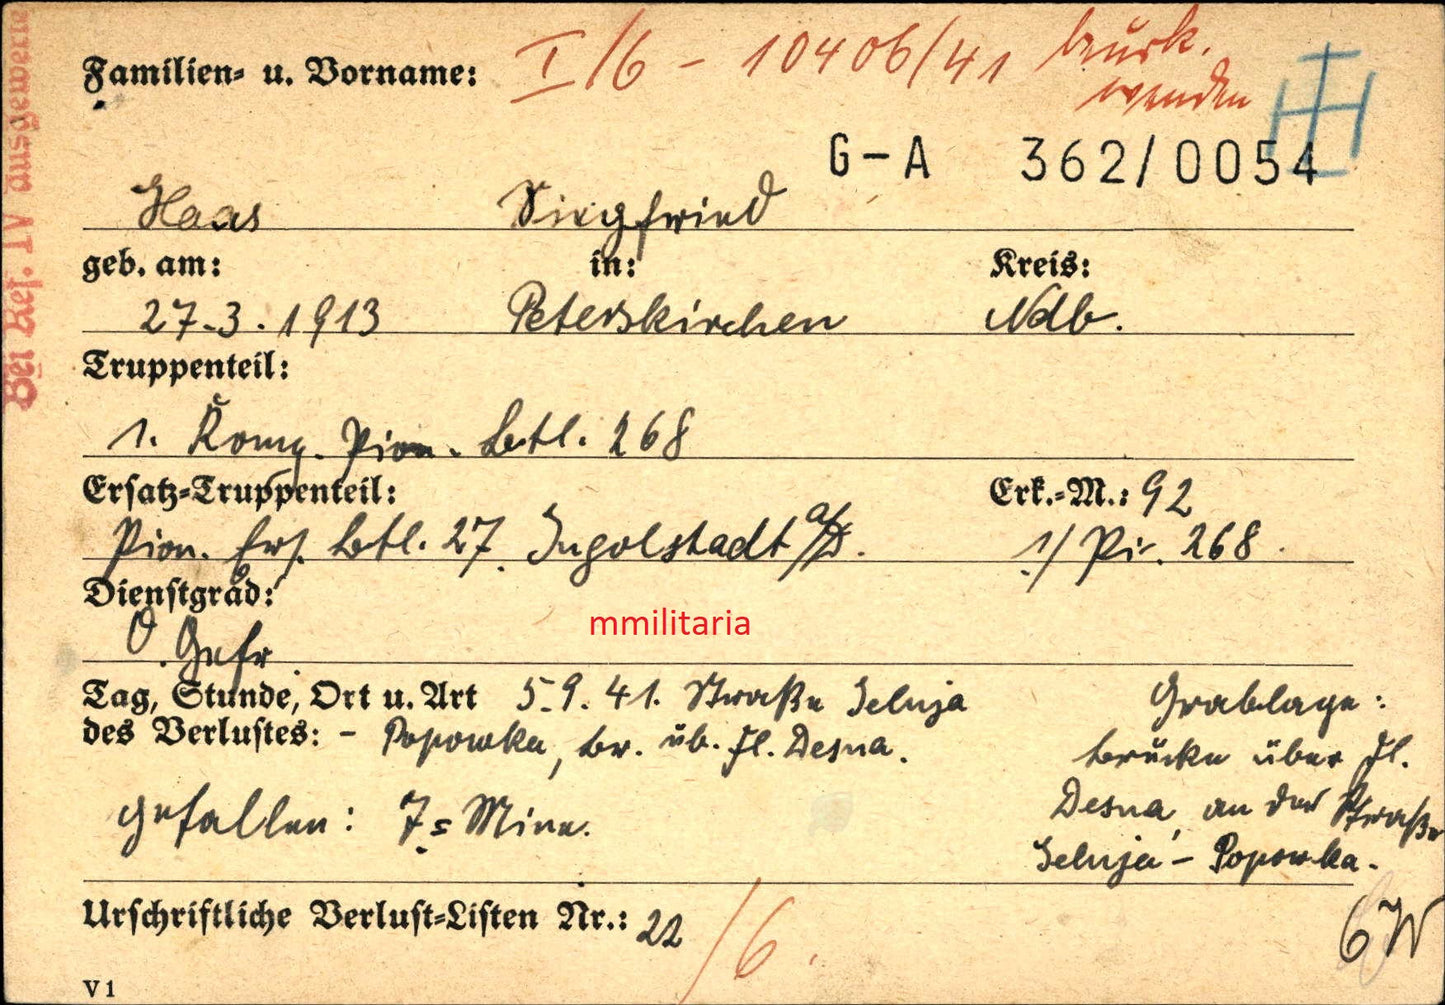 Bei Ref. IV ausgewertet
Familien- u. Vorname:
I/6 - 10406/41 beurk.
wenden
G-A 362/0054
Haas Siegfried
geb. am: in: Kreis:
27.3.1913 Peterskirchen Ndb.
Truppenteil:
1. Komp. Pion. Btl. 268
Ersatz-Truppenteil: Erk.-M.: 92
Pion. Ers. Btl. 27 Ingolstadt a/D. 1/ Pi. 268
Dienstgrad:
O. Gefr.
mmilitaria
Tag, Stunde, Ort u. Art 5.9.41. Straße Selnja
des Verlustes: - Popowka, br. üb. Fl. Desna.
gefallen: 7 = Mine.
Grablage:
brücke über Fl.
Desna, an der Straße
Selnja - Popowka.
Urschriftliche Verlust-Listen Nr.: 22 /6.
V1